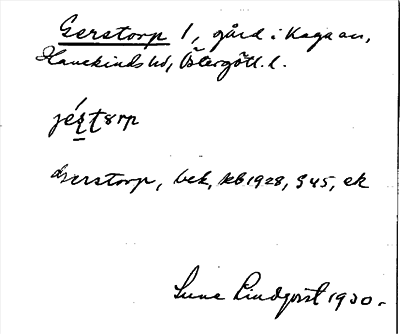 Gerstorp 1, gård i Kaga sn,
Hanekinds hd, Östergötl. l.
jérstorp
Gerstorp, bek, KB 1928, § 45, ek
Sune Lindqvist 1930.